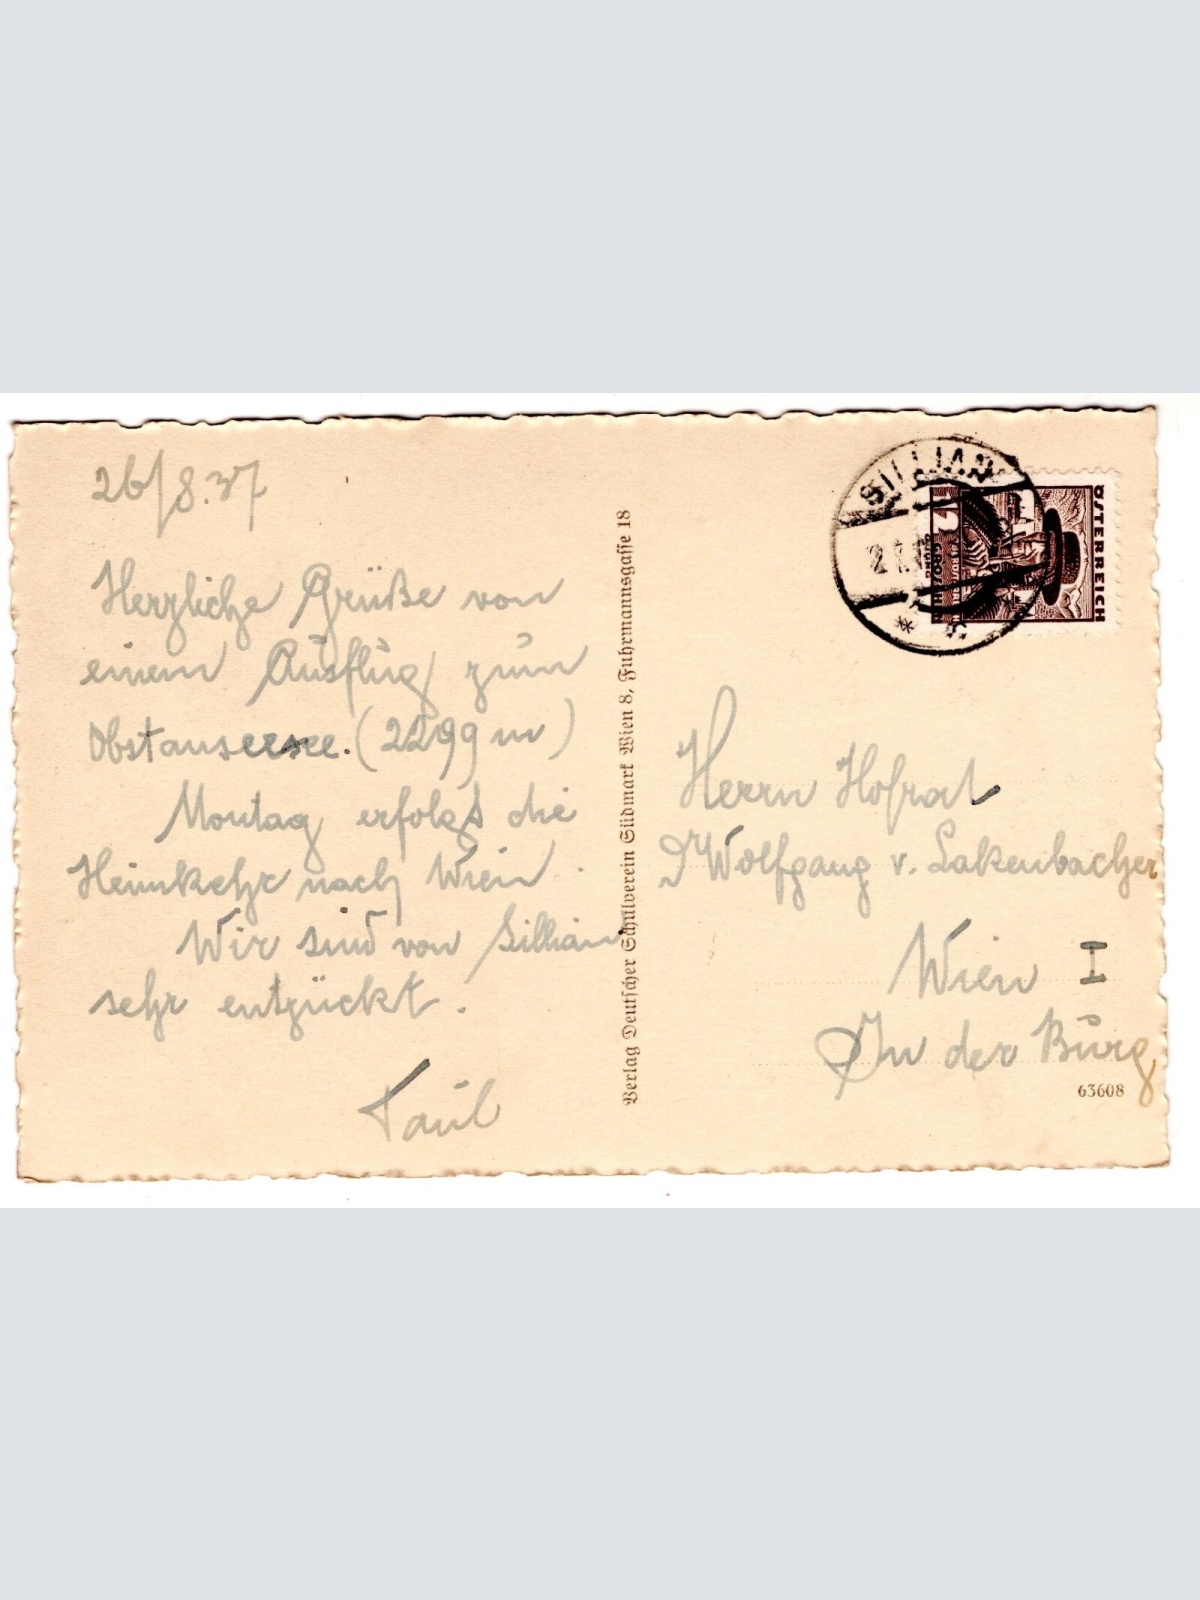 26/8.37
Herzliche Grüße von
einem Ausflug zum
Obstansersee. (2299 m)
Montag erfolgt die
Heimkehr nach Wien.
Wir sind von Sillian
sehr entzückt.
Paul
Verlag Deutscher Schulverein Südmark Wien 8, Fuhrmannsgasse 18
SILLIAN
ÖSTERREICH
2 GROSCHEN
Herrn Hofrat
Dr Wolfgang v. Lakenbacher
Wien I
In der Burg
63608